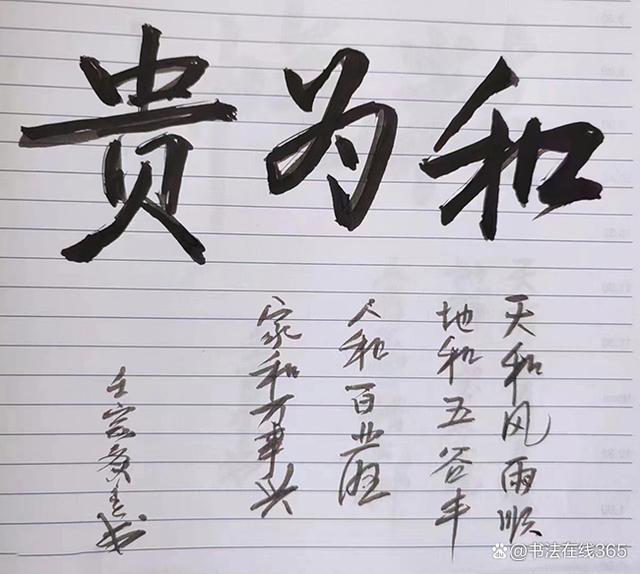 和为贵
天和风雨顺
地和五谷丰
人和百业
家和万事兴
壬寅 书
@书法在线365